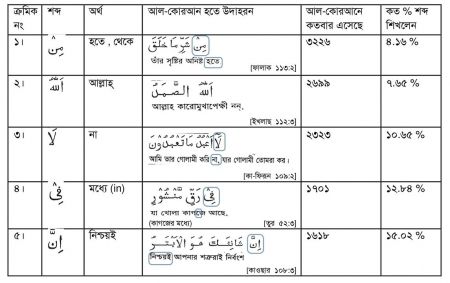 ক্রমিক নং শব্দ অর্থ আল-কোরআন হতে উদাহরন আল-কোরআনে কতবার এসেছে কত % শব্দ শিখলেন
১। مِنْ হতে , থেকে مِنْ شَرِّ مَا خَلَقَ ৩২২৬ ৪.১৬ %
তাঁর সৃষ্টির অনিষ্ট হতে
[ফালাক ১১৩:২]
২। اَللّٰهُ আল্লাহ্ اَللّٰهُ الصَّمَدُ ২৬৯৯ ৭.৬৫ %
আল্লাহ কারোমুখাপেক্ষী নন্,
[ইখলাছ ১১২:২]
৩। لَا না لَا اَعْبُدُ مَا تَعْبُدُوْنَ ২৩২৩ ১০.৬৫ %
আমি তার গোলামী করি না, যার গোলামী তোমরা কর।
[কা-ফিরুন ১০৯:২]
৪। فِىْ মধ্যে (in) فِىْ رَقٍّ مَّنْشُوْرٍ ১৭০১ ১২.৮৪ %
যা খোলা কাগজে আছে,
(কাগজের মধ্যে) [তুর ৫২:৩]
৫। اِنَّ নিশ্চয়ই اِنَّ شَانِئَكَ هُوَ الْاَبْتَرُ ১৬১৮ ১৫.০২ %
নিশ্চয়ই আপনার শত্রুরাই নির্বংশ
[কাওছার ১০৮:৩]